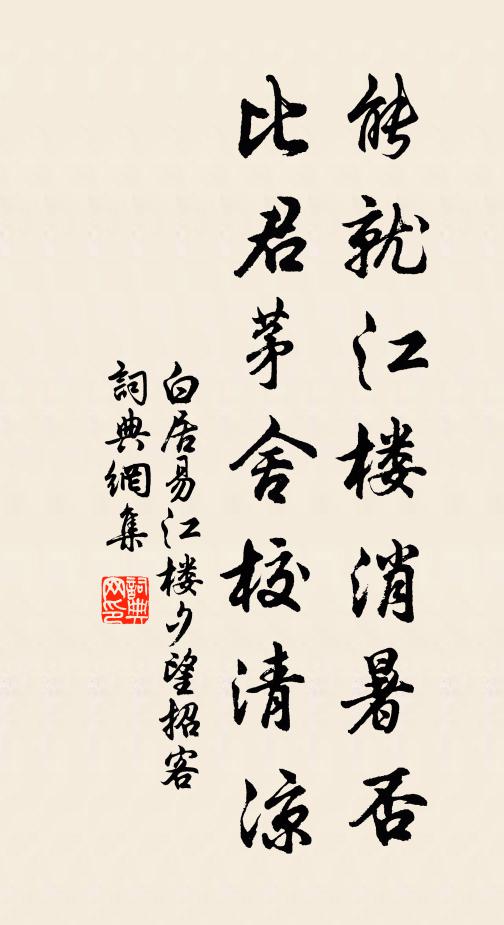 能就江楼消暑否
比君茅舍校清凉
白居易江楼夕望招客
詞典網集
詞典网印